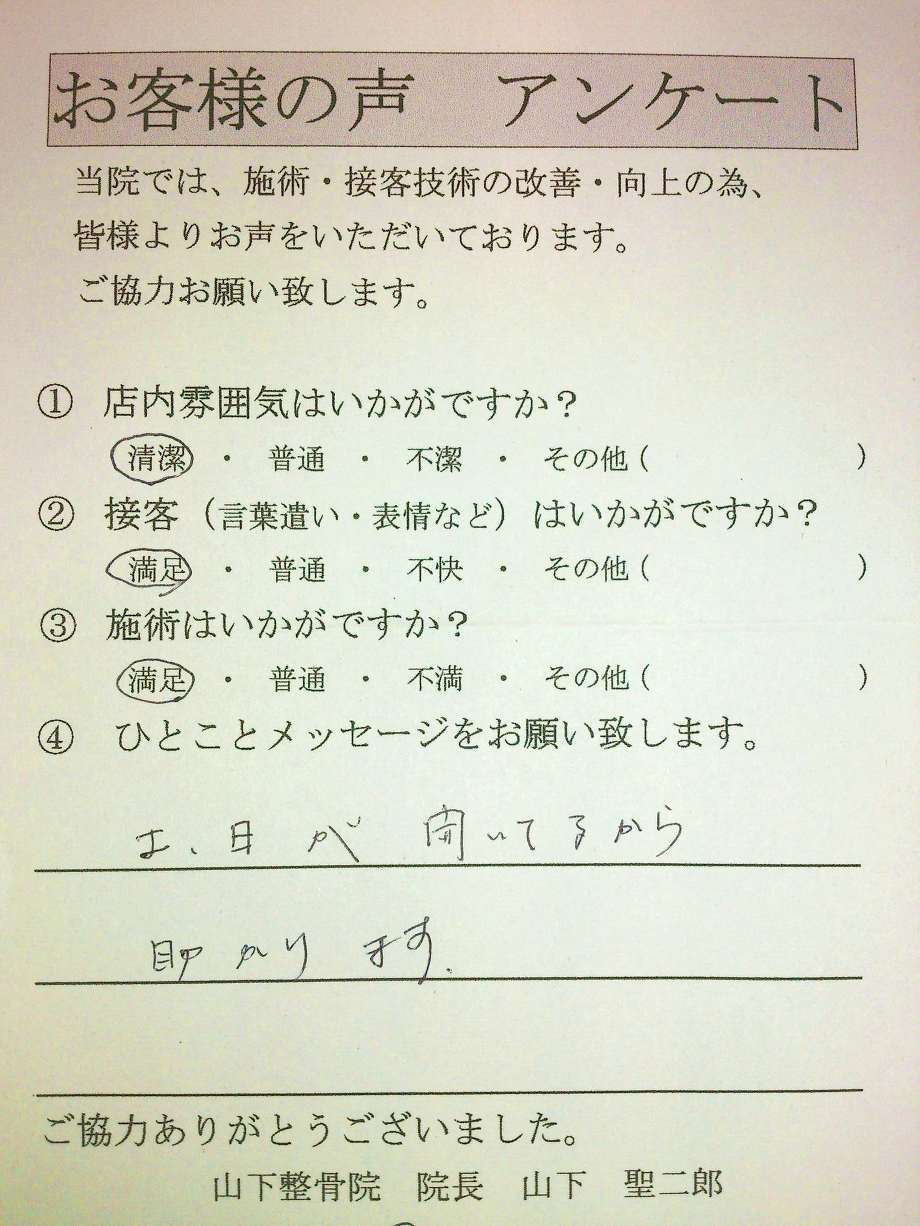 お客様の声　アンケート
当院では、施術・接客技術の改善・向上の為、
皆様よりお声をいただいております。
ご協力お願い致します。
① 店内雰囲気はいかがですか？
清潔 ・ 普通 ・ 不潔 ・ その他（　　　）
② 接客（言葉遣い・表情など）はいかがですか？
満足 ・ 普通 ・ 不快 ・ その他（　　　）
③ 施術はいかがですか？
満足 ・ 普通 ・ 不満 ・ その他（　　　）
④ ひとことメッセージをお願い致します。
土、日が 開いてるから
助かります.
ご協力ありがとうございました。
山下整骨院　院長　山下　聖二郎